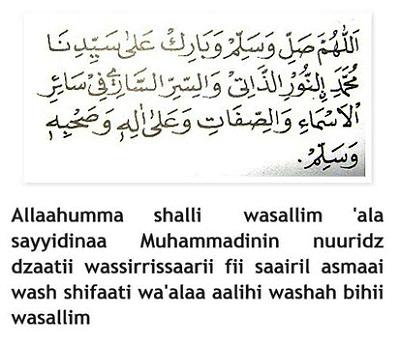 اَللّٰهُمَّ صَلِّ وَسَلِّمْ وَبَارِكْ عَلىٰ سَيِّدِنَا
مُحَمَّدٍ النُّوْرِ الذَّاتِىْ وَالسِّرِّ السَّارِيْ فِيْ سَائِرِ
الْاَسْمَاءِ وَالصِّفَاتِ وَعَلىٰ اٰلِهٖ وَصَحْبِهٖ
وَسَلِّمْ.
Allaahumma shalli wasallim 'ala
sayyidinaa Muhammadinin nuuridz
dzaatii wassirrissaarii fii saairil asmaai
wash shifaati wa'alaa aalihi washah bihii
wasallim